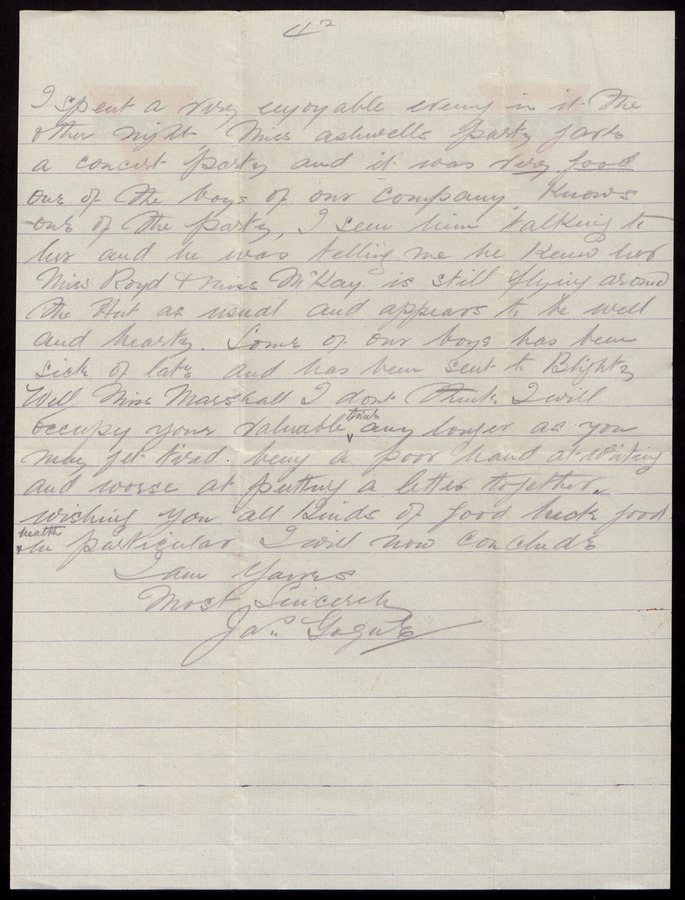 4
I spent a very enjoyable evening in it the
other night, Miss ashwells party
a concert party and it was very good
one of the boys of our company, Knows
one of the party, I seen him talking to
her and he was telling me he Knew her
Miss Royd & miss McKay is still flying around
the Hut as usual and appears to be well
and hearty. Some of our boys has been
sick of late and has been sent to Blighty
Well Miss Marshall I dont think I will
occupy your valuable time any longer as you
may get tired. being a poor hand at writing
and worse at putting a letter together.
wishing you all kinds of good luck good
health in particular I will now conclude
I am Yours
Most Sincerely
Jas.